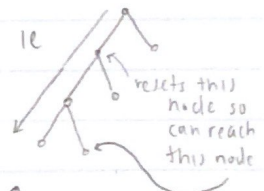 ie
resets this
node so
can reach
this node